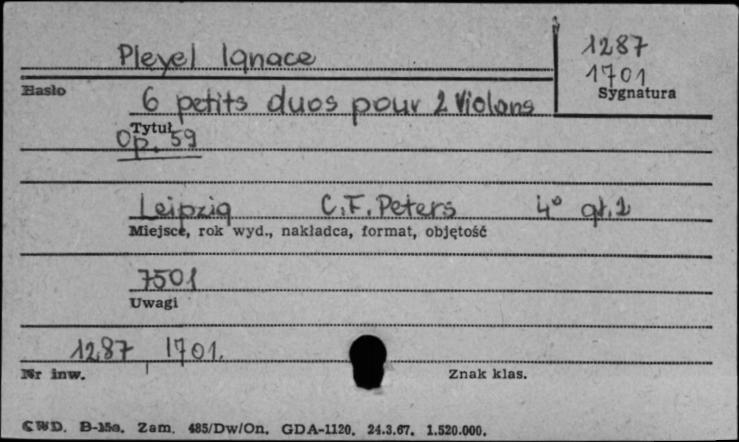 Pleyel Ignace
1287
1701
Hasło
Sygnatura
6 petits duos pour 2 Violons
Tytuł
Op. 59
Leipzig C.F. Peters 4° gł. 2
Miejsce, rok wyd., nakładca, format, objętość
7501
Uwagi
1287 1701.
Nr inw.
Znak klas.
CWD. B-15a. Zam. 485/Dw/On. GDA-1120. 24.3.67. 1.520.000.